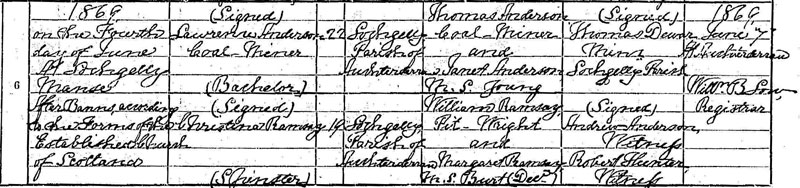 6
1869
on the Fourth
day of June
At Lochgelly
Manse
After Banns, according
to the Forms of the
Established Church
of Scotland
(Signed)
Lawrence Anderson
Coal-Miner
(Bachelor)
(Signed)
Christina Ramsay
(Spinster)
22
19
Lochgelly
Parish of
Auchterderran
Lochgelly
Parish of
Auchterderran
Thomas Anderson
Coal-Miner
and
Janet Anderson
M.S. Young
William Ramsay,
Pit-Wright
and
Margaret Ramsay
M.S. Burt (Decd)
(Signed)
Thomas Dewar
Minr
Lochgelly Parish
(Signed)
Andrew Anderson,
Witness
Robert Hunter
Witness
1869,
June 7
At Auchterderran
Willm B
Registrar